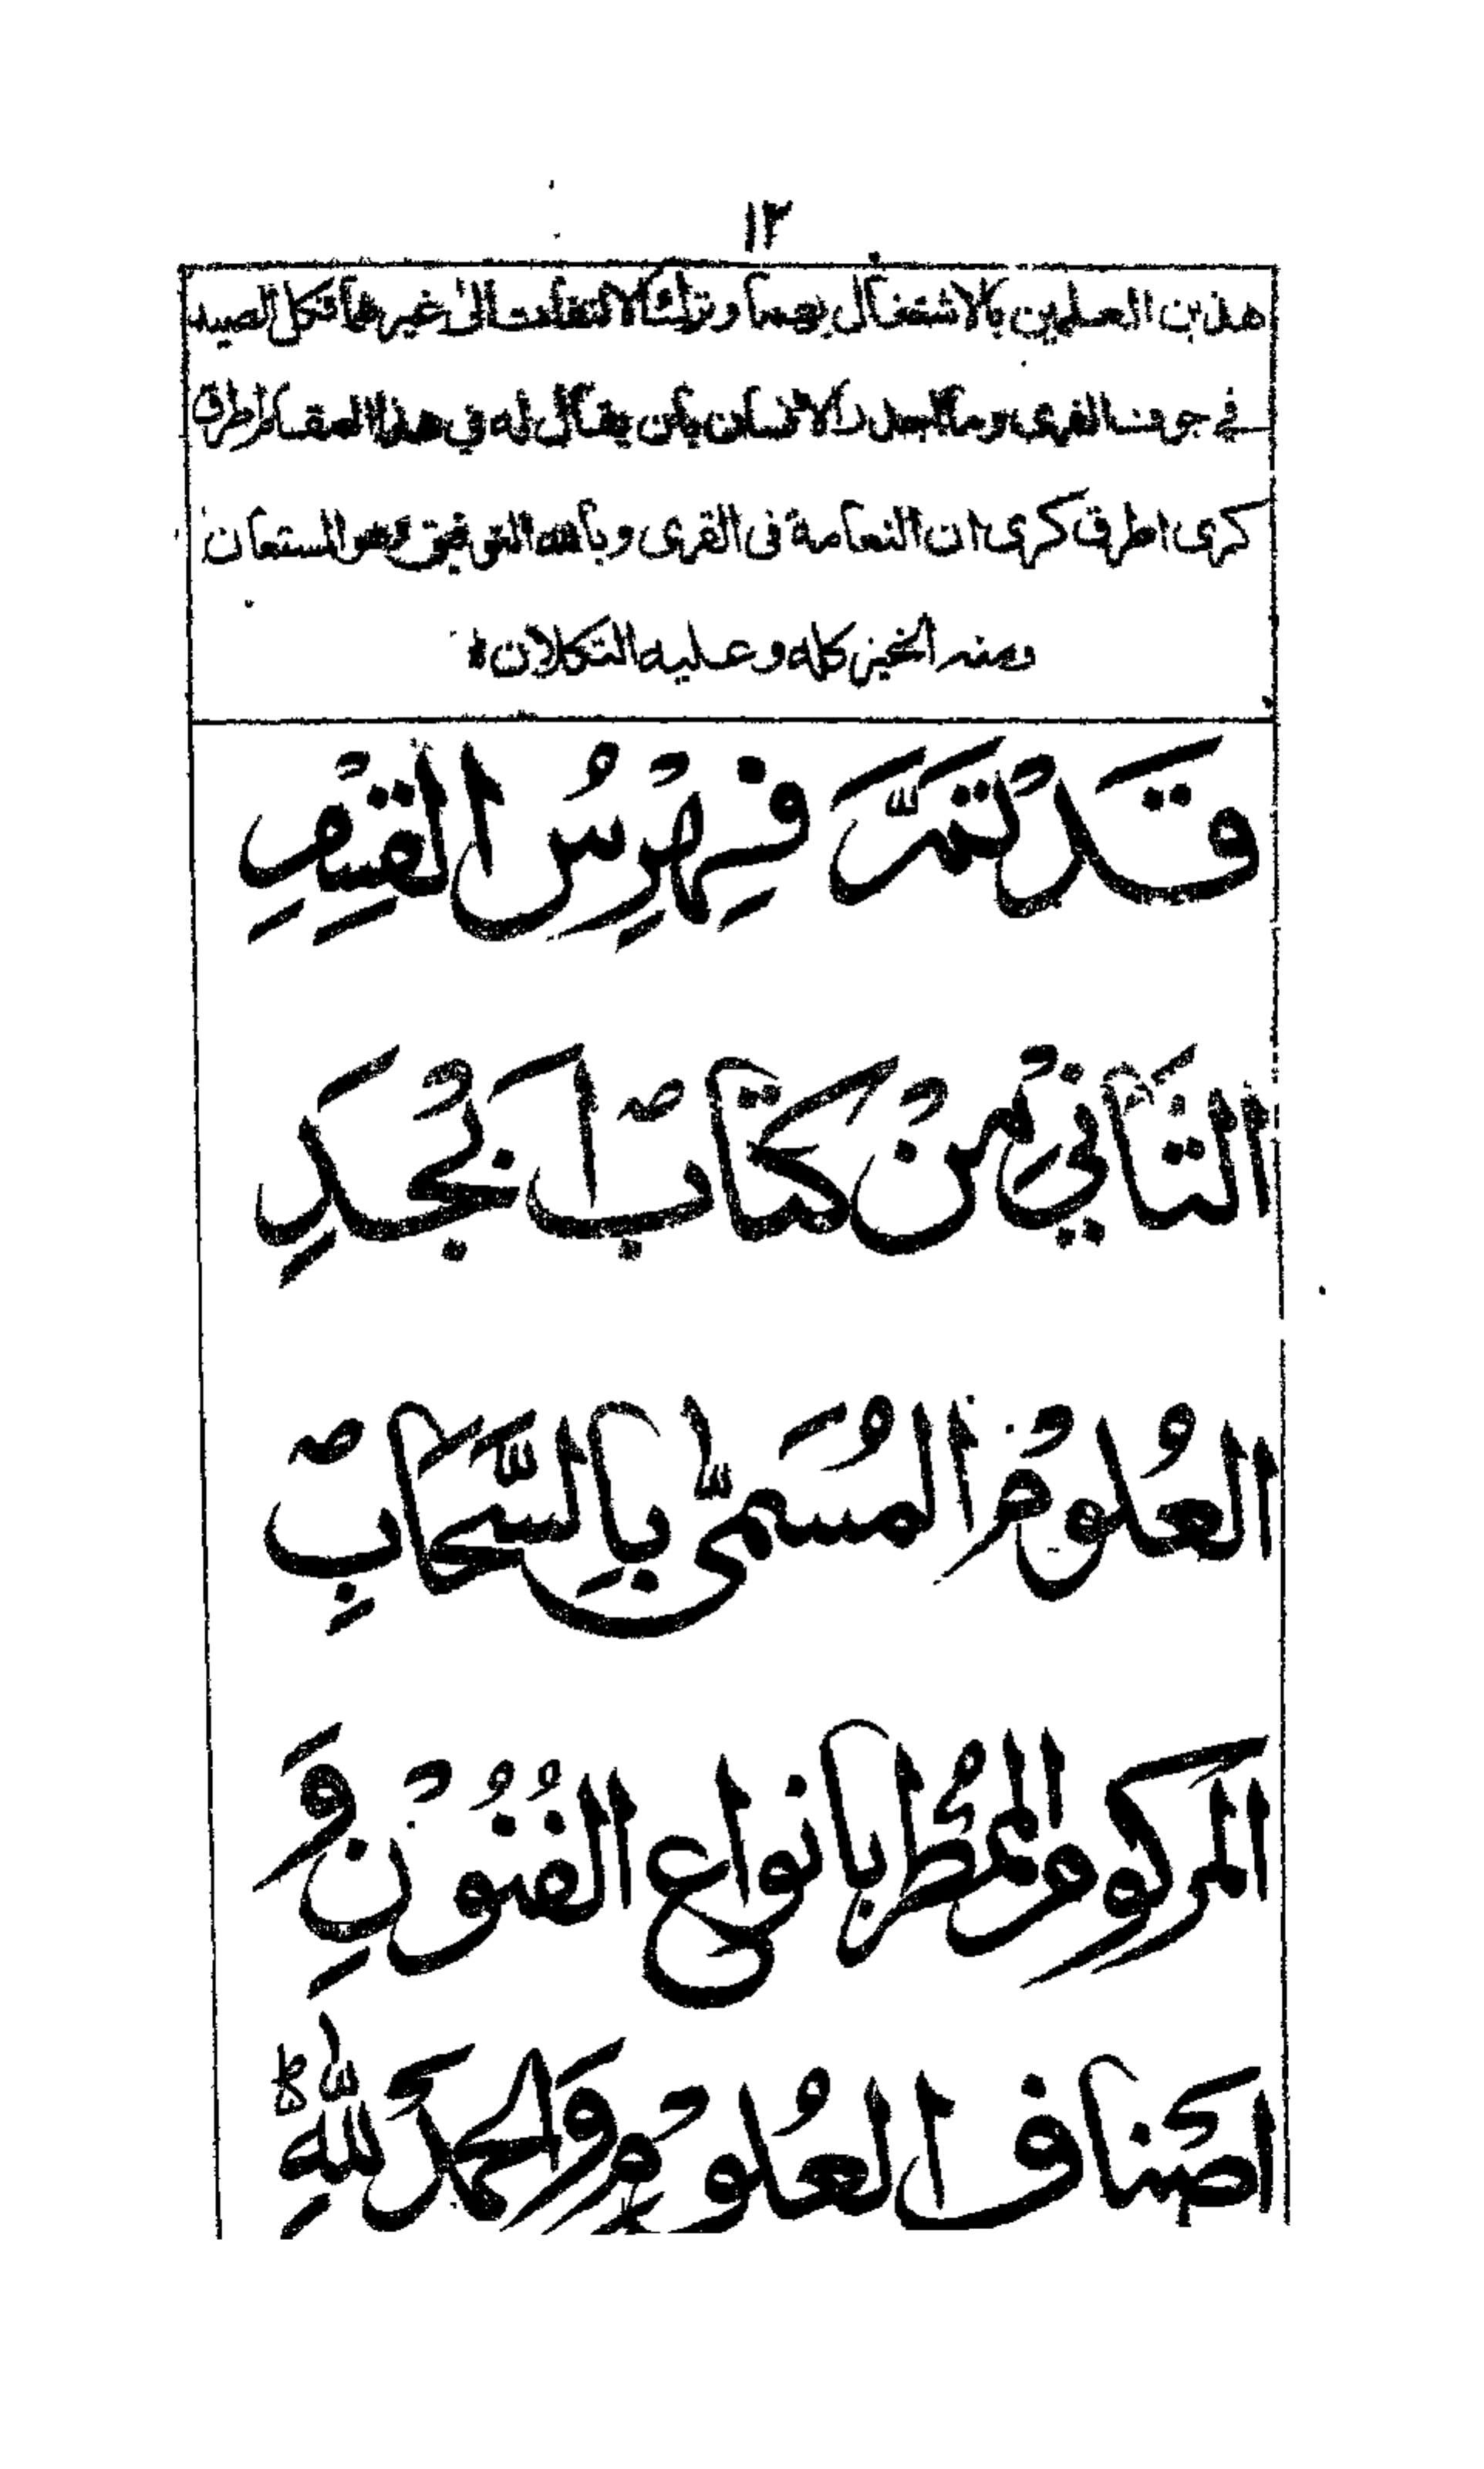 ١٢
هذين العلمين بالاشتغال بهما وترك الالتفات الى غيرهما فكل الصيد
في جوف الفرى وما اجدر الانسان بان يقال له في هذا المقام اطرق
كرى اطرق كرى ان النعامة فى القرى وبالله التوفيق وهو المستعان
ومنه الخير كله وعليه التكلان
قَدْ تَمَّ فِهْرِسُ الْقِسْمِ
الثَّانِيْ مِنْ كِتَابِ اَبْجَدِ
الْعُلُوْمِ الْمُسَمّٰى بِالسَّحَابِ
الْمَرْكُوْمِ الْمُمْطِرِ بِاَنْوَاعِ الْفُنُوْنِ وَ
اَصْنَافِ الْعُلُوْمِ وَالْحَمْدُ لِلّٰهِ